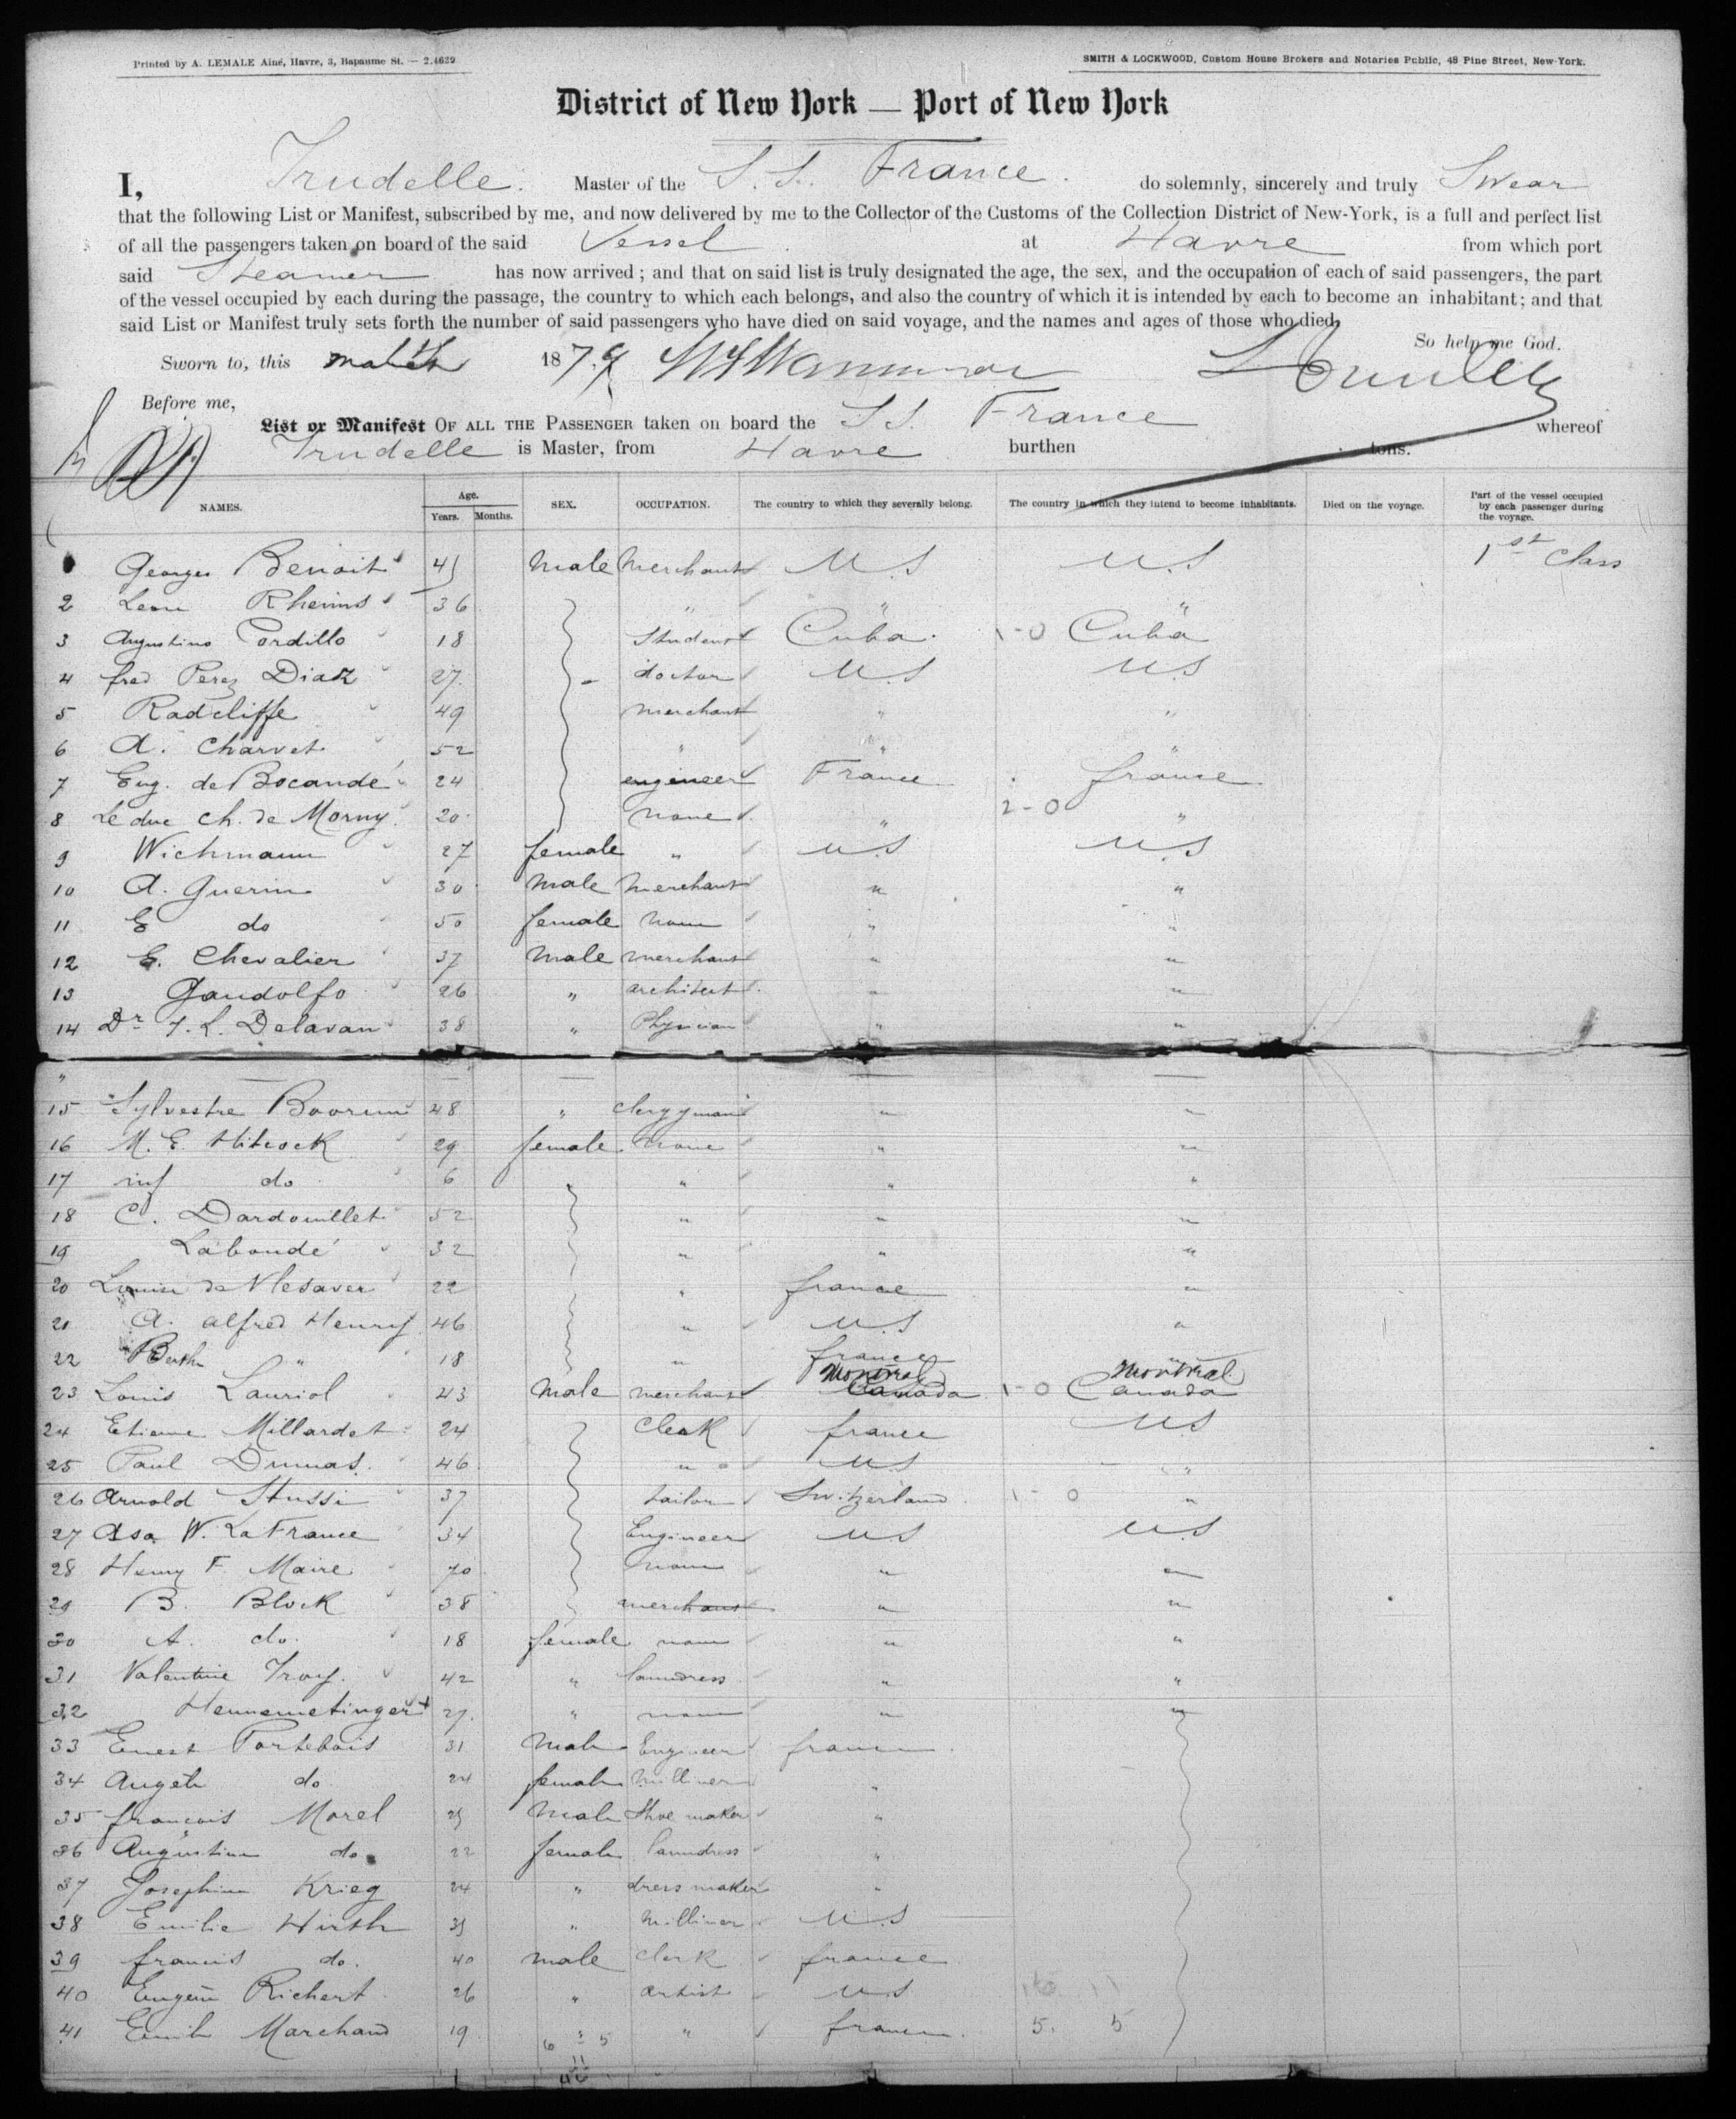 Printed by A. LEMALE Ainé, Havre, 3, Bapaume St. — 2.4629
SMITH & LOCKWOOD, Custom House Brokers and Notaries Public, 48 Pine Street, New-York.
District of New York — Port of New York
I, Trudelle. Master of the S. S. France. do solemnly, sincerely and truly Swear
that the following List or Manifest, subscribed by me, and now delivered by me to the Collector of the Customs of the Collection District of New-York, is a full and perfect list
of all the passengers taken on board of the said Vessel at Havre from which port
said Steamer has now arrived ; and that on said list is truly designated the age, the sex, and the occupation of each of said passengers, the part
of the vessel occupied by each during the passage, the country to which each belongs, and also the country of which it is intended by each to become an inhabitant ; and that
said List or Manifest truly sets forth the number of said passengers who have died on said voyage, and the names and ages of those who died.
So help me God.
Sworn to, this 187.9
Before me,
List or Manifest OF ALL THE PASSENGER taken on board the S S. France whereof
Trudelle is Master, from Havre burthen tons.
NAMES. Age. Years. Months. SEX. OCCUPATION. The country to which they severally belong. The country in which they intend to become inhabitants. Died on the voyage. Part of the vessel occupied by each passenger during the voyage.
Georges Benoit Male Merchant U.S U.S 1st Class
2 Leon Rheims 36 " " "
3 Augustino Pordillo 18 Student Cuba. 1-0 Cuba
4 fred Perez Diaz 27. doctor U.S U.S
5 Radcliffe 49 merchant " "
6 A. Charvet 52 " " "
7 Eug. de Bocandé 24 engineer France france
8 Le duc Ch. de Morny. 20. none " 2-0 "
9 Wichmann 27 female " U.S U.S
10 A. Guerin 30 Male Merchant " "
11 E do 50 female none " "
12 E. Chevalier 37 Male merchant " "
13 Gandolfo 26 " architect " "
14 Dr J. L. Delavan 38 " Physician " "
15 Sylvestre Boorum 48 " clergyman " "
16 M. E. Hitcock 29 female None " "
17 inf do 6 " " " "
18 C. Dardouillet 52 " " "
19 Labondé 32 " " "
20 Louise de 22 " france "
21 A. alfred Henry 46 " U.S "
22 Berthe " 18 " france "
23 Louis Lauriol 43 Male merchant Montreal Canada 1-0 Montreal Canada
24 Etienne Millardet 24 Clerk france U.S
25 Paul Dumas. 46 " U.S "
26 Arnold Stussi 37 tailor Switzerland 1-0 "
27 Asa W. LaFrance 34 Engineer U.S U.S
28 Henry F. Maire 70 none " "
29 B. Block 38 merchant " "
30 A. do. 18 female none " "
31 Valentine Troy. 42 " laundress " "
32 27. " none " "
33 Ernest Portebois 31 Male Engineer france
34 Angèle do 24 female Milliner "
35 francois Morel Male Shoe maker "
36 Augustine do 22 female laundress "
37 Josephine Krieg 24 " dress maker "
38 Emilie Hirth " Milliner U.S
39 francis do. 40 male Clerk france
40 Eugene Richert 26 " artist U.S
41 Emile Marchand 19 " " france. 5. 5
6 5
11